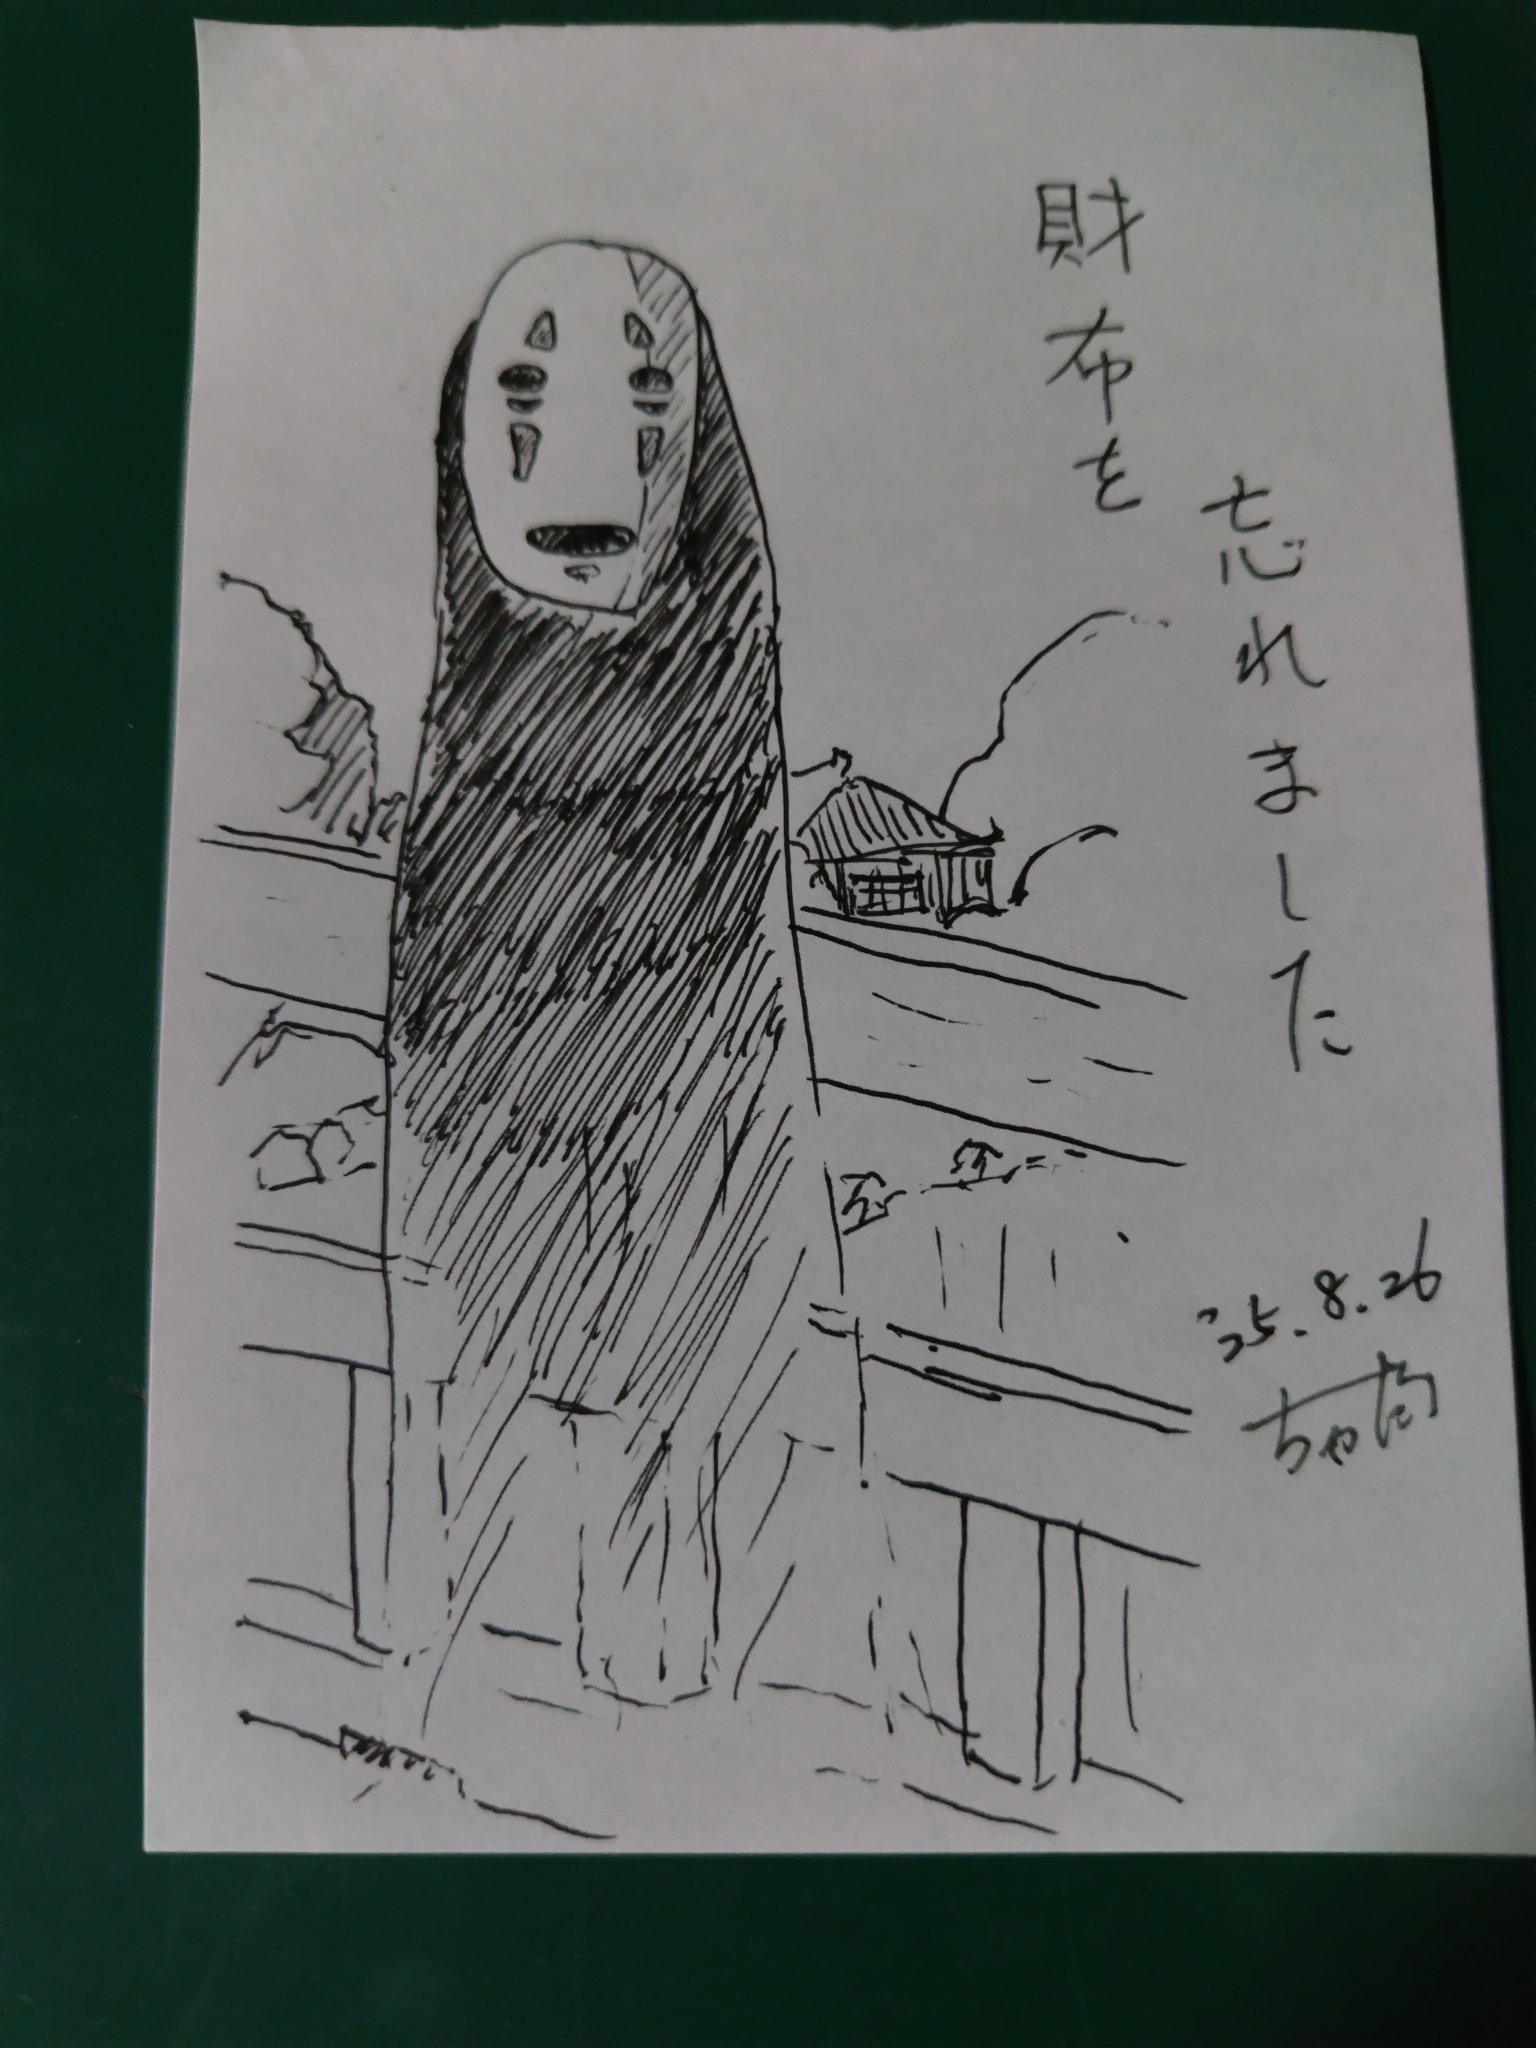 財布を
忘れました
'25.8.26